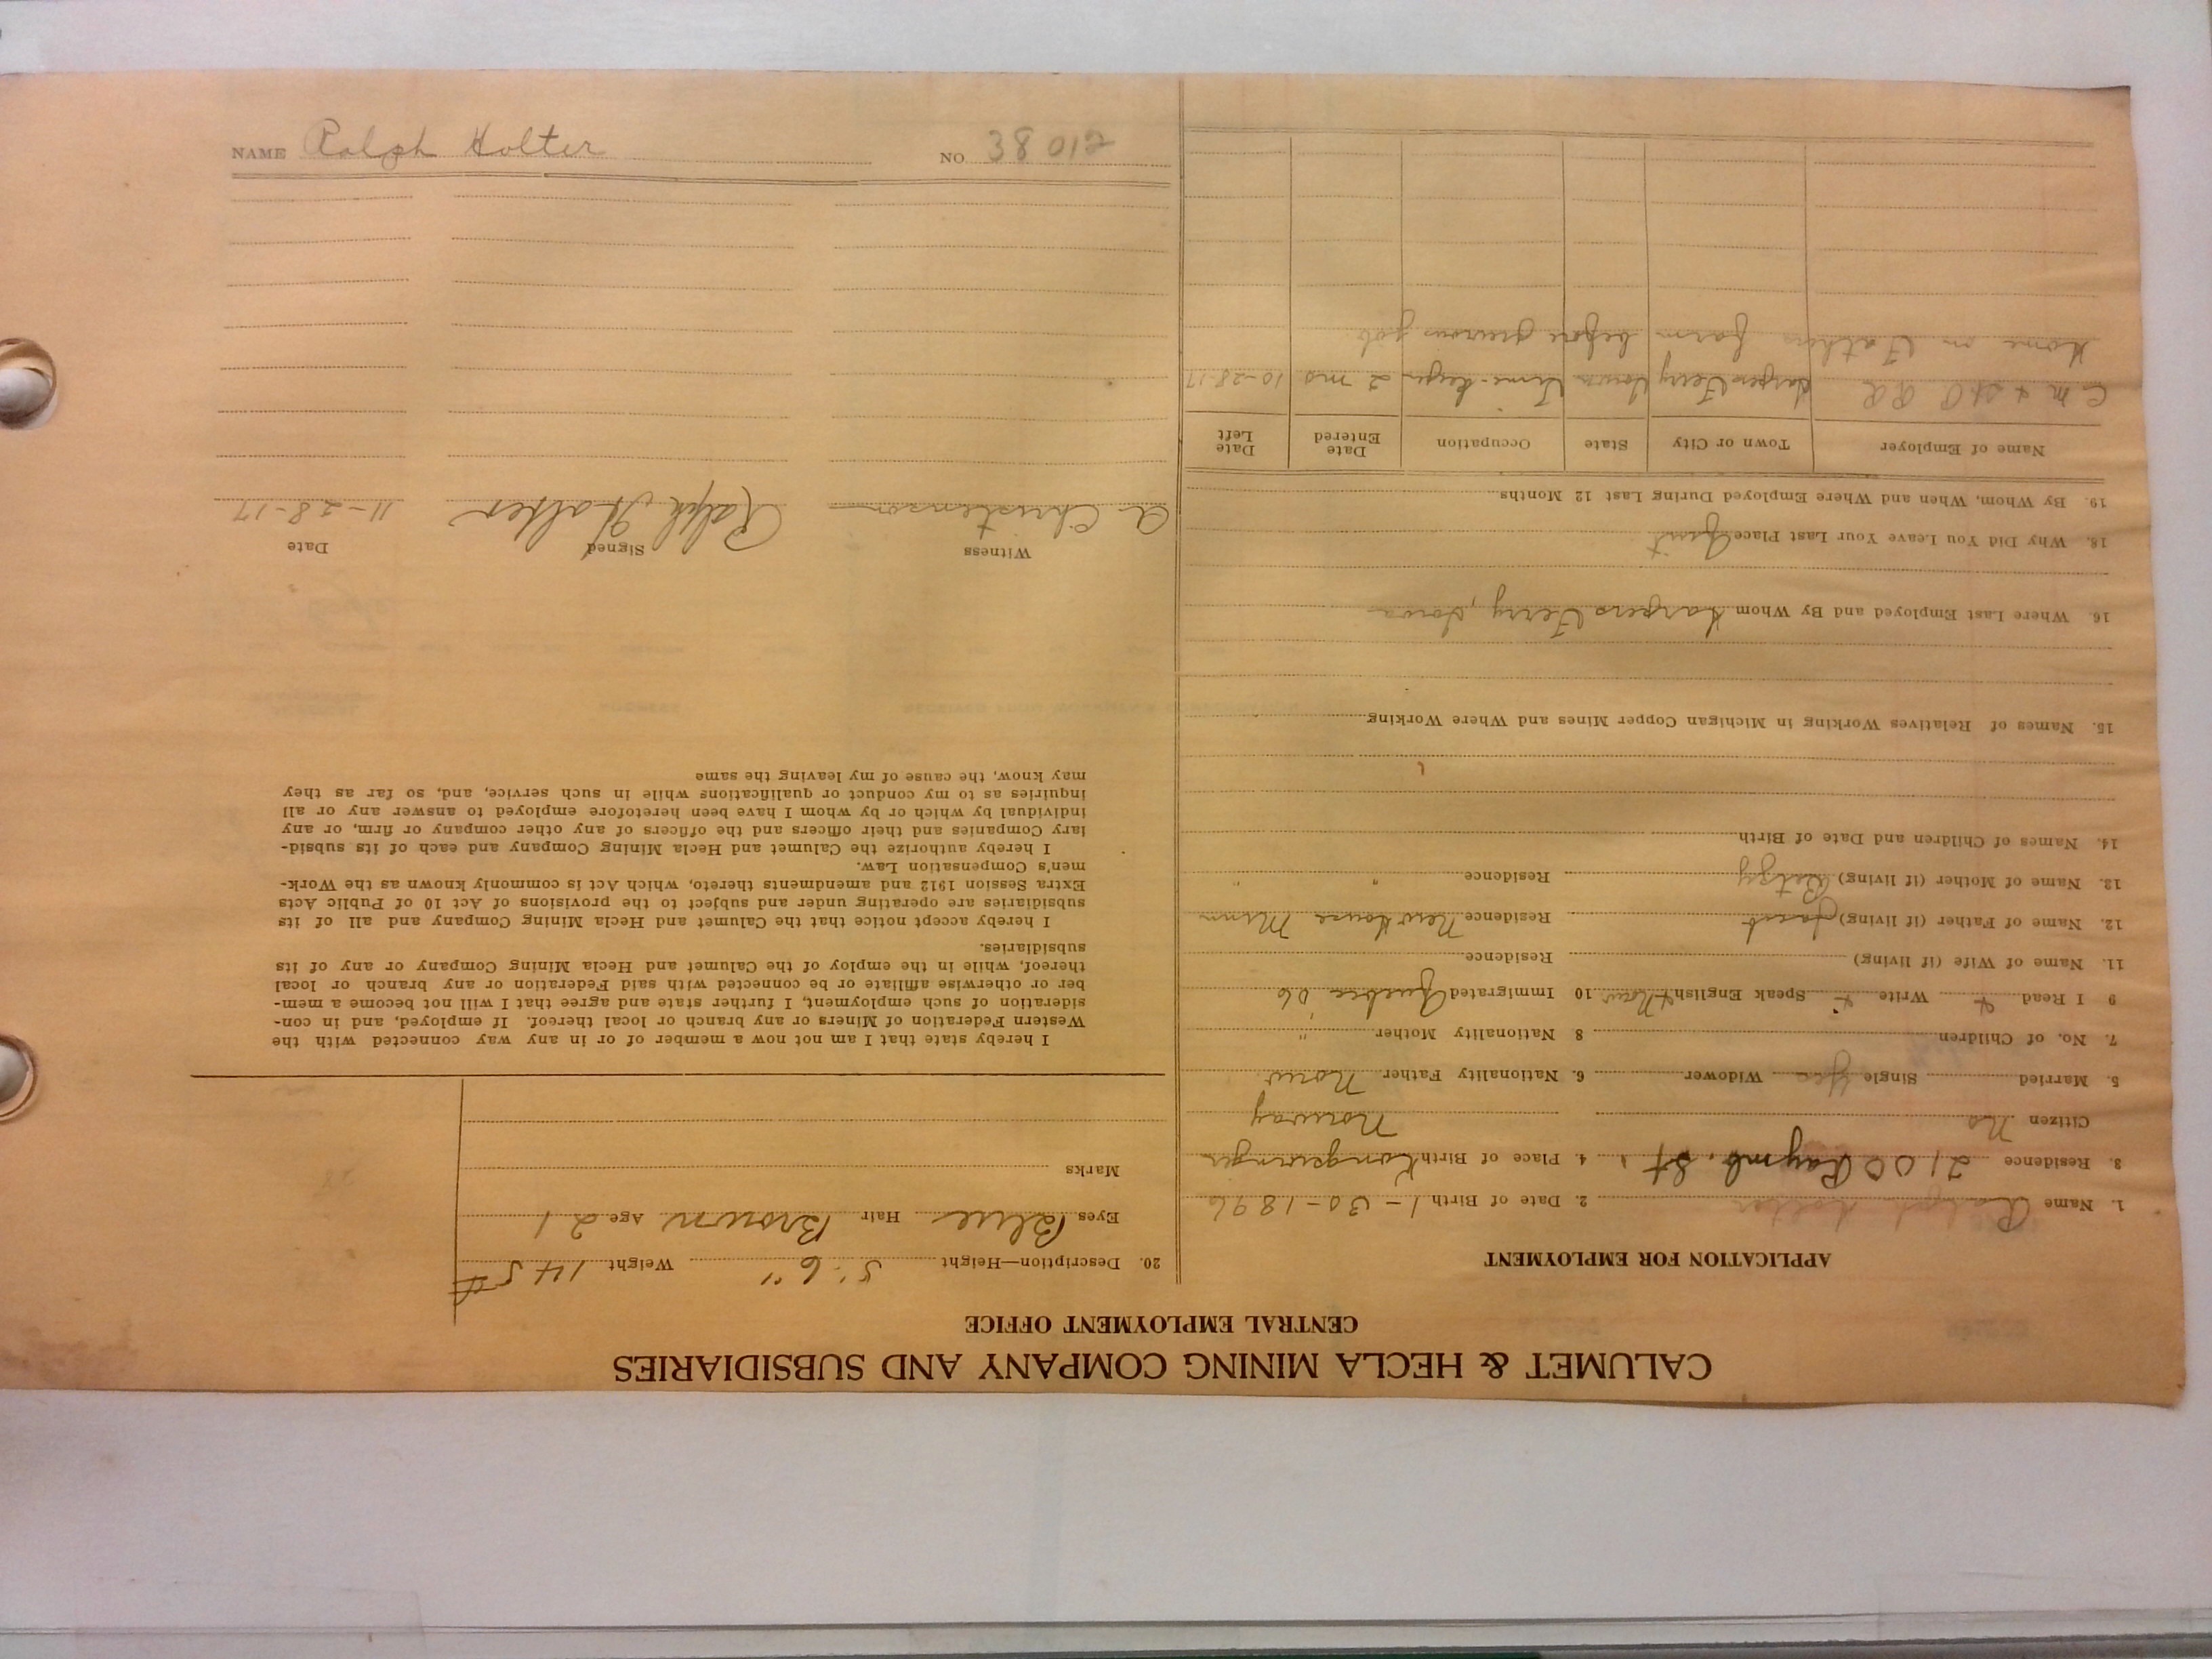 CALUMET & HECLA MINING COMPANY AND SUBSIDIARIES
CENTRAL EMPLOYMENT OFFICE
APPLICATION FOR EMPLOYMENT
1. Name Ralph Holter 2. Date of Birth 1-30-1896
3. Residence 2100 Raymb. St. 4. Place of Birth Kongsvinger
Citizen No Norway
5. Married Single Yes Widower 6. Nationality Father Norw.
7. No. of Children 8 Nationality Mother "
9 I Read + Write + Speak English + Norw 10 Immigrated Quebec 06
11. Name of Wife (if living) Residence
12. Name of Father (if living) Residence New House Minn
13. Name of Mother (if living) Betzy Residence " "
14. Names of Children and Date of Birth
15. Names of Relatives Working in Michigan Copper Mines and Where Working
16. Where Last Employed and By Whom Harpers Ferry, Iowa
18. Why Did You Leave Your Last Place Quit
19. By Whom, When and Where Employed During Last 12 Months
Name of Employer Town or City State Occupation Date Entered Date Left
C M & St P RR Harpers Ferry Iowa Time-keeper 2 mo 10-28-17
Home on Fathers farm before previous job
20. Description—Height 5' 6" Weight 145 #
Eyes Blue Hair Brown Age 21
Marks
I hereby state that I am not now a member of or in any way connected with the
Western Federation of Miners or any branch or local thereof. If employed, and in con-
sideration of such employment, I further state and agree that I will not become a mem-
ber or otherwise affiliate or be connected with said Federation or any branch or local
thereof, while in the employ of the Calumet and Hecla Mining Company or any of its
subsidiaries.
I hereby accept notice that the Calumet and Hecla Mining Company and all of its
subsidiaries are operating under and subject to the provisions of Act 10 of Public Acts
Extra Session 1912 and amendments thereto, which Act is commonly known as the Work-
men's Compensation Law.
I hereby authorize the Calumet and Hecla Mining Company and each of its subsid-
iary Companies and their officers and the officers of any other company or firm, or any
individual by which or by whom I have been heretofore employed to answer any or all
inquiries as to my conduct or qualifications while in such service, and, so far as they
may know, the cause of my leaving the same
Witness Signed Date
A Christenson Ralph Holter 11-28-17
NAME Ralph Holter NO 38012